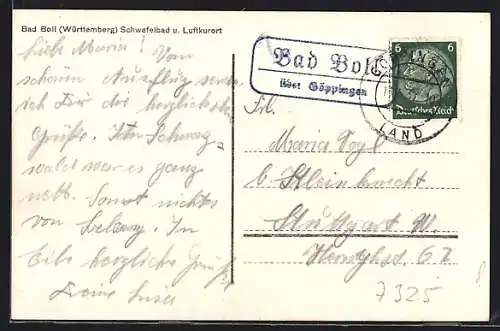 Bad Boll (Württemberg) Schwefelbad u. Luftkurort
Liebe Maria! Vom
schönen Ausflug
ich Dir die herzlichsten
Grüße. Im Schwarz-
wald war es ganz
nett. Sonst nichts
von In
Eile herzliche Grüße
Deine
Bad Boll
über Göppingen
GÖPPINGEN
LAND
6 6
Deutsches Reich
Frl.
Maria Vogl
b. Kleinknecht
Stuttgart W.
7325